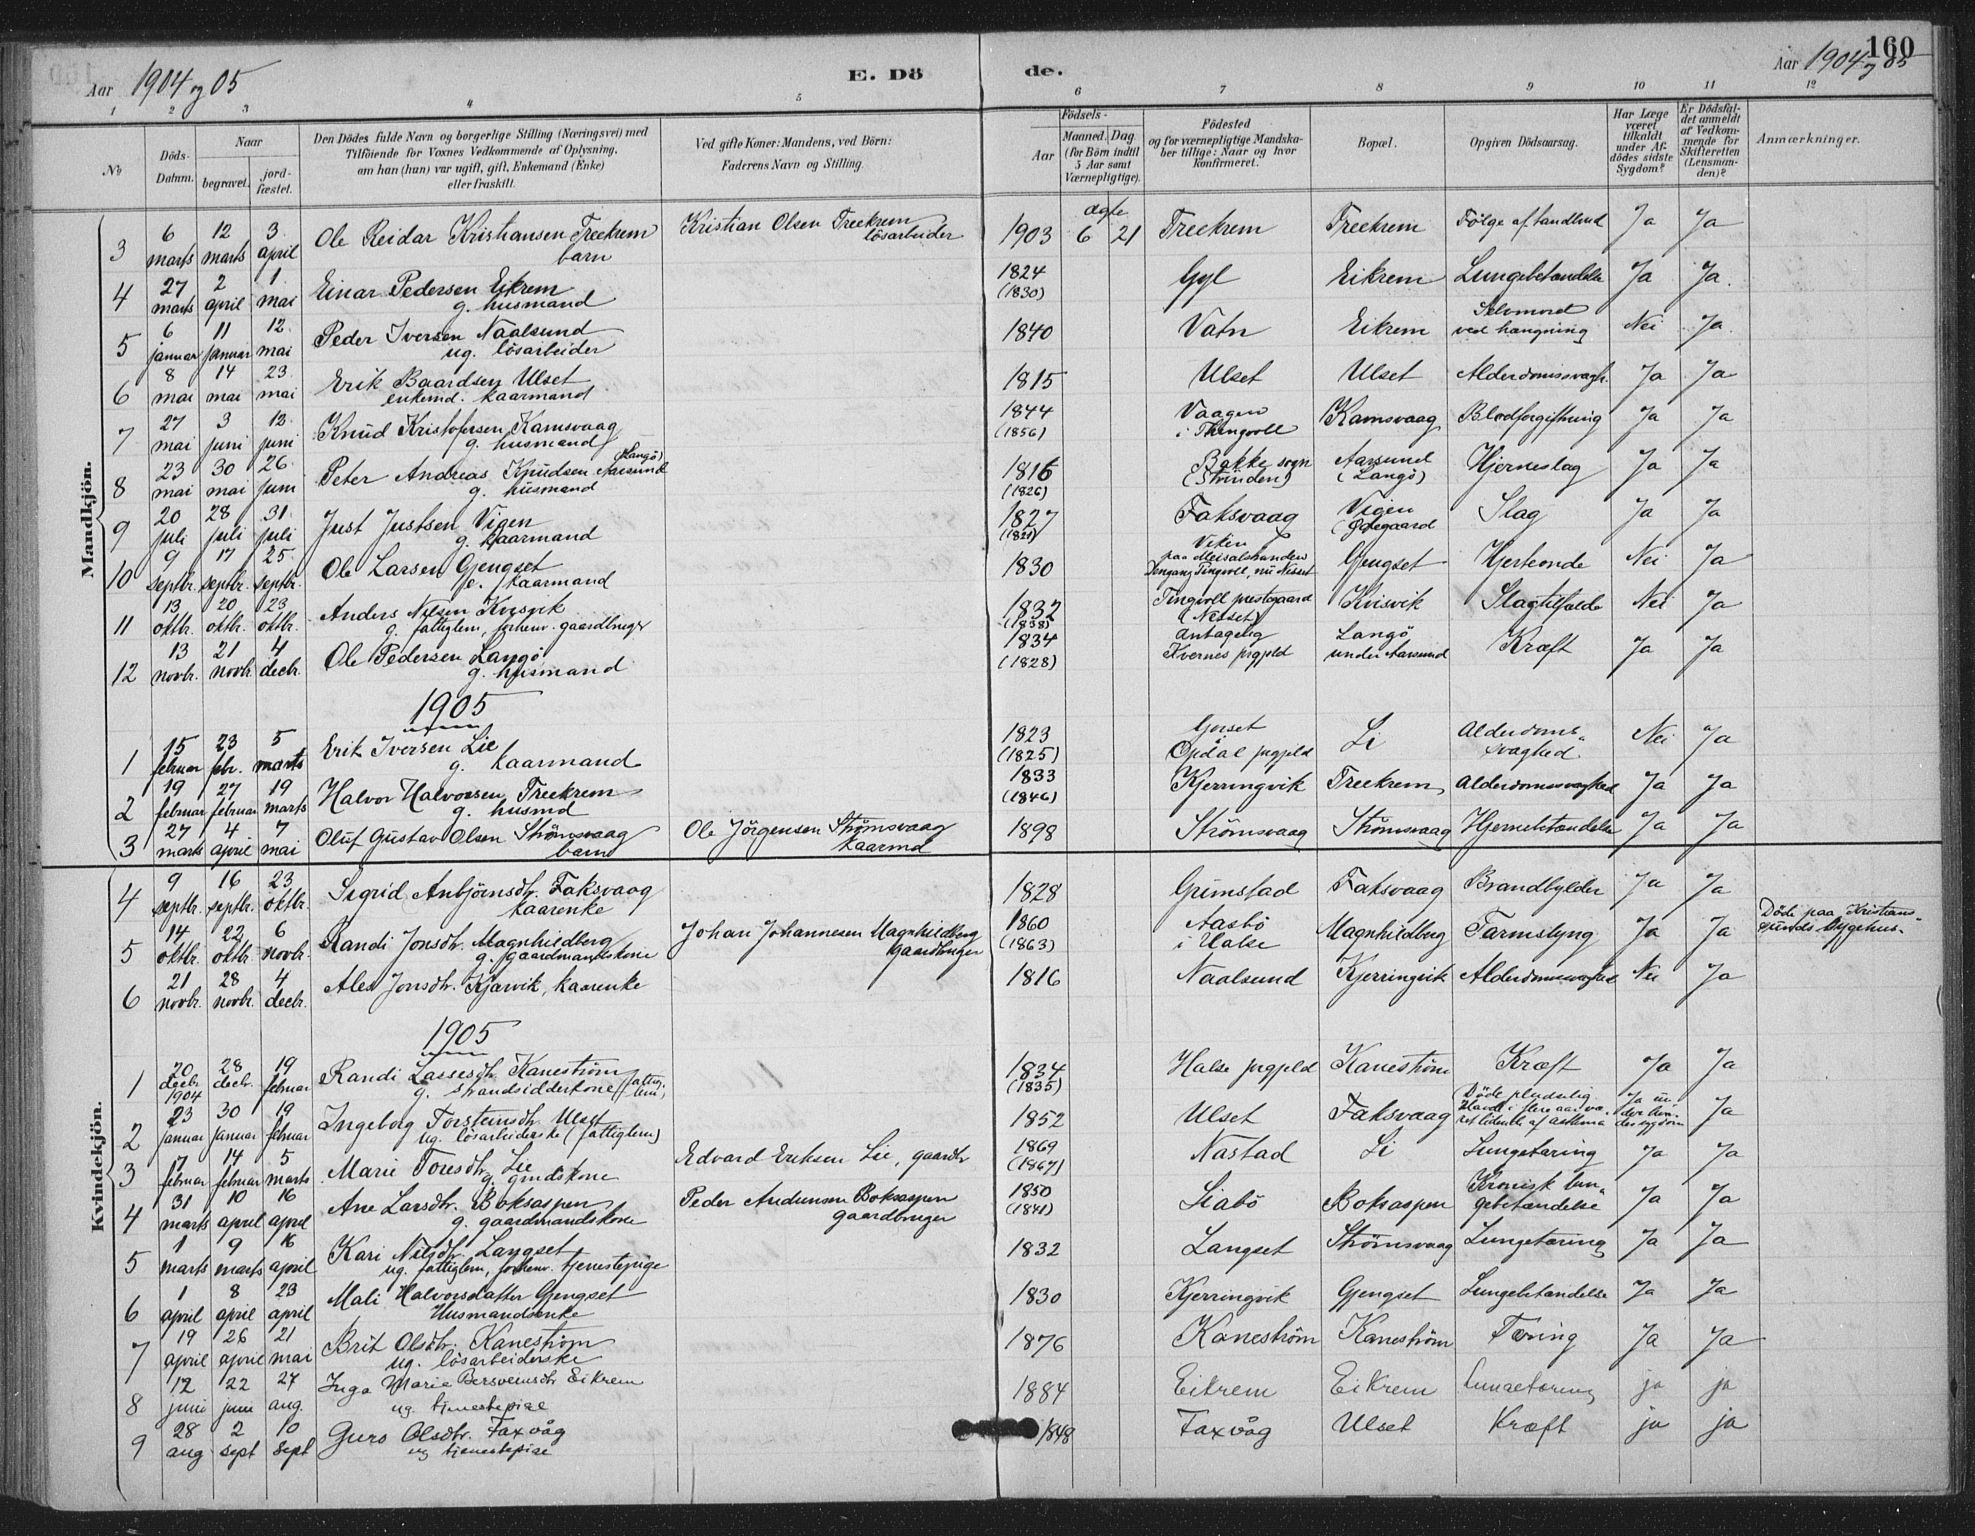 Aar 1904 og 05
E. Dö
de.
Aar 1904 og 05
160
1 2 3 4 5 6 7 8 9 10 11 12
№
Döds-Datum.
Naar
begravet.
jord-fæstet.
Den Dödes fulde Navn og borgerlige Stilling (Næringsvei) med
Tilföiende for Voxnes Vedkommende af Oplysning,
om han (hun) var ugift, gift, Enkemand (Enke)
eller fraskilt.
Ved gifte Koner: Mandens, ved Börn:
Faderens Navn og Stilling.
Födsels-
Aar
Maaned. Dag.
(for Börn indtil
5 Aar samt
Værnepligtige).
Födested
og for værnepligtige Mandska-
ber tillige: Naar og hvor
Konfirmeret.
Bopæl.
Opgiven Dödsaarsag.
Har Læge
været
tilkaldt
under Af-
dödes sidste
Sygdom?
Er Dödsfal-
det anmeldt
af Vedkom-
mende for
Skifteretten
(Lensman-
den)?
Anmærkninger.
Mandkjön.
3 6 marts 12 marts 3 april Ole Reidar Kristiansen Treekrem barn Kristian Olsen Treekrem lösarbeider 1903 ægte 6 21 Treekrem Treekrem Fölge af tandbrud Ja Ja
4 27 marts 2 april 1 mai Einar Pedersen Eikrem g. husmand 1824 (1830) Gyl Eikrem Lungebetændelse Ja Ja.
5 6 januar 11 januar 12 mai Peder Iversen Naalsund ug. lösarbeider 1840 Vatn Eikrem Selvmord ved hængning Nei Ja
6 8 mai 14 mai 23 mai Erik Baardsen Ulset enkemd. kaarmand 1815 Ulset Ulset Alderdomssvagh. Ja Ja
7 27 mai 3 juni 12 juni Knud Kristofersen Kamsvaag g. husmand 1844 (1856) Vaagen i Thingvoll Kamsvaag Blodforgiftning Ja Ja
8 23 mai 30 mai 26 juni Peter Andreas Knudsen Aarsund (Langö) g. husmand 1816 (1826) Bakke sogn (Strinden) Aarsund (Langö) Hjerneslag Ja Ja
9 20 juli 28 juli 31 juli Just Justsen Vigen g. kaarmand 1827 Faksvaag Vigen (Ödegaard Slag Ja Ja
10 9 septbr. 17 septbr. 25 septbr. Ole Larsen Gjengset g. kaarmand 1830 Viken paa Meisalstranden Dengang Tingvoll, nu Nesset Gjengset Hjerteonde Nei Ja
11 13 oktbr. 20 oktbr. 23 oktbr. Anders Nilsen Kvisvik g. fattiglem, forhenv. gaardbruger 1832 (1838) Tingvoll prestegaard (Nesset) Kvisvik Slagtilfælde Nei Ja
12 13 novbr. 21 novbr. 4 decbr. Ole Pedersen Langö g. husmand 1834 (1828) antagelig Kvernes prgjeld Langö under Aarsund Kræft Ja Ja
1905
1 15 februar 23 febr. 5 marts Erik Iversen Lie g. kaarmand 1823 (1825) Opdal prgjeld Li Alderdoms-svaghed. Nei Ja
2 19 februar 27 februar 19 marts Halvor Halvorsen Treekrem g. husmd 1833 (1846) Kjerringvik Treekrem Alderdomssvaghed Ja Ja
3 27 marts 4 april 7 mai Oluf Gustav Olsen Strömsvaag barn Ole Jörgensen Strömsvaag kaarmd 1898 Strömsvaag Strömsvaag Hjernebetændelse Ja Ja
Kvindekjön.
4 9 septbr. 16 septbr. 23 oktbr. Sigrid Anbjörnsdtr. Faksvaag kaarenke 1828 Grimstad Faksvaag Brandbylder Ja Ja
5 14 oktbr. 22 oktbr. 6 novbr. Randi Jonsdtr. Magnhildberg g. gaardmandskone Johan Johannesen Magnhildberg gaardbruger 1860 (1863) Aasbö i Halse Magnhildberg Tarmslyng Ja Ja Döde paa Kristians-sunds sygehus.
6 21 novbr. 28 novbr. 4 decbr. Ales Jonsdtr. Kjørvik, kaarenke 1816 Naalsund Kjerringvik Alderdomssvaghed Nei Ja
1905
1 20 decbr 1904 28 decbr. 19 februar Randi Lassesdtr. Kaneström g. strandsidderkone (fattiglem) 1834 (1835) Halse prgjeld Kaneström Kræft Ja Ja
2 23 januar 30 januar 19 februar Ingeborg Torsteinsdtr. Ulset ug. lösarbeiderske (fattiglem) 1852 Ulset Faksvaag Döde pludselig. Havde i flere aar været lidende af astma Ja Ja
3 7 februar 14 februar 5 marts Marie Toresdtr. Lie g. grndskone Edvard Eriksen Lie, gaardbr 1869 (1867) Nastad Li Lungetæring Ja Ja
4 31 marts 10 april 16 april Ane Larsdtr. Boksaspen g. gaardmandskone Peder Andersen Boksaspen gaardbruger 1850 (1841) Liabö Boksaspen Kronisk lun-gebetændelse Ja Ja
5 1 marts 9 marts 16 april Kari Nilsdtr. Langset ug. fattiglem, forhenv. tjenestepige 1832 Langset Strömsvaag Lungetæring Ja Ja
6 1 april 8 april 23 april Mali Halvorsdatter Gjengset Husmandsenke 1830 Kjerringvik Gjengset Lungebetændelse Ja Ja
7 19 april 26 april 21 mai Brit Olsdtr. Kaneström ug. lösarbeiderske 1876 Kaneström Kaneström Tæring Ja Ja
8 12 juni 22 juni 27 aug. Inga Marie Bersveinsdtr Eikrem ug. tjenestepige 1884 Eikrem Eikrem Lungetæring ja ja
9 28 aug 2 sept 10 sept Guro Olsdtr. Faxvåg ug tjenestepige 1848 Faxvåg Ulset Kræft ja ja